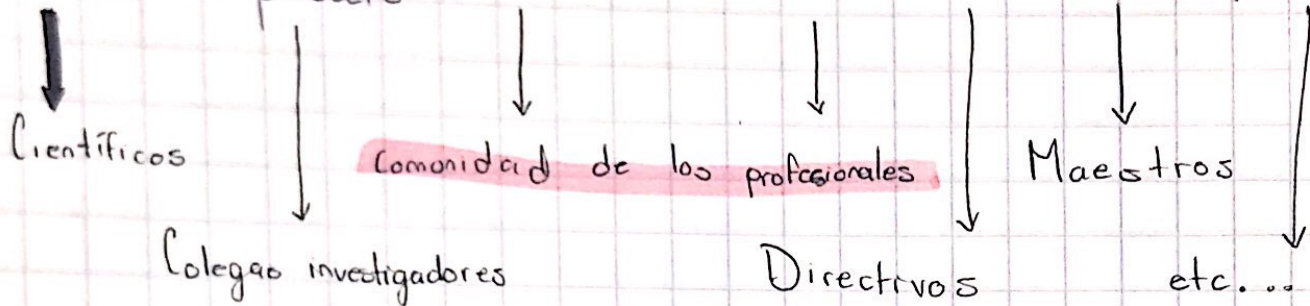 Científicos comonidad de los profesionales Maestros
Colegas investigadores Directivos etc...